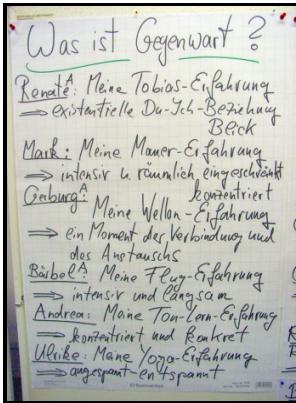 Was ist Gegenwart?
Renate A: Meine Tobias-Erfahrung
⇒ existentielle Du-Ich-Beziehung
Blick
Mark: Meine Mauer-Erfahrung
⇒ intensiv u. räumlich eingeschränkt
konzentriert
Geburg A:
Meine Wellen-Erfahrung
⇒ ein Moment der Verbindung und
des Austauschs
Bärbel A: Meine Flug-Erfahrung
⇒ intensiv und langsam
Andrea: Meine Ton-Lern-Erfahrung
⇒ konzentriert und konkret
Ulrike: Meine Yoga-Erfahrung
⇒ angespannt-entspannt